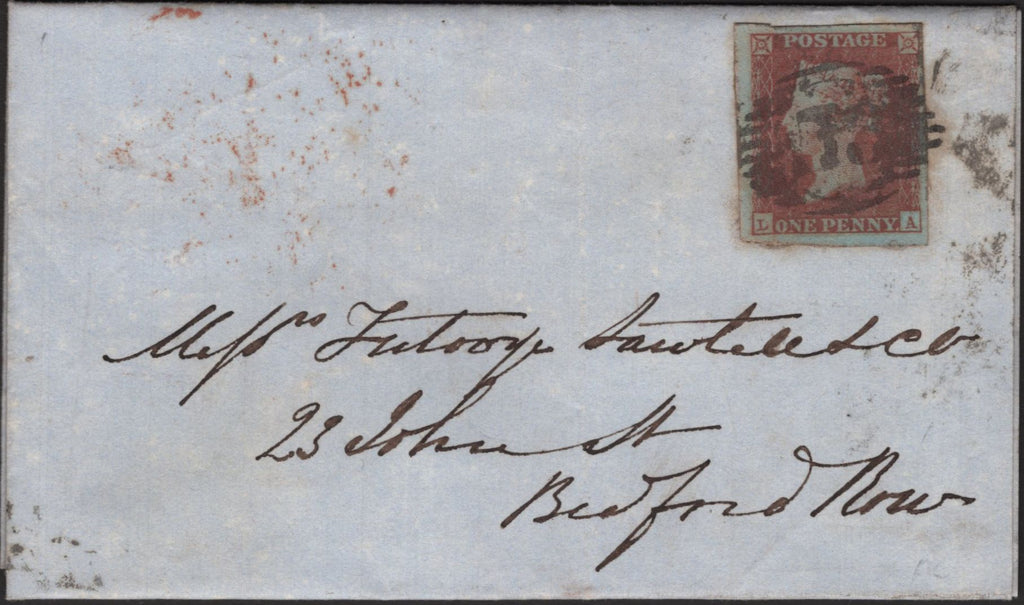 POSTAGE
L ONE PENNY. A
Mess rs Futvoye Sawtell & Co
23 John St
Bedford Row